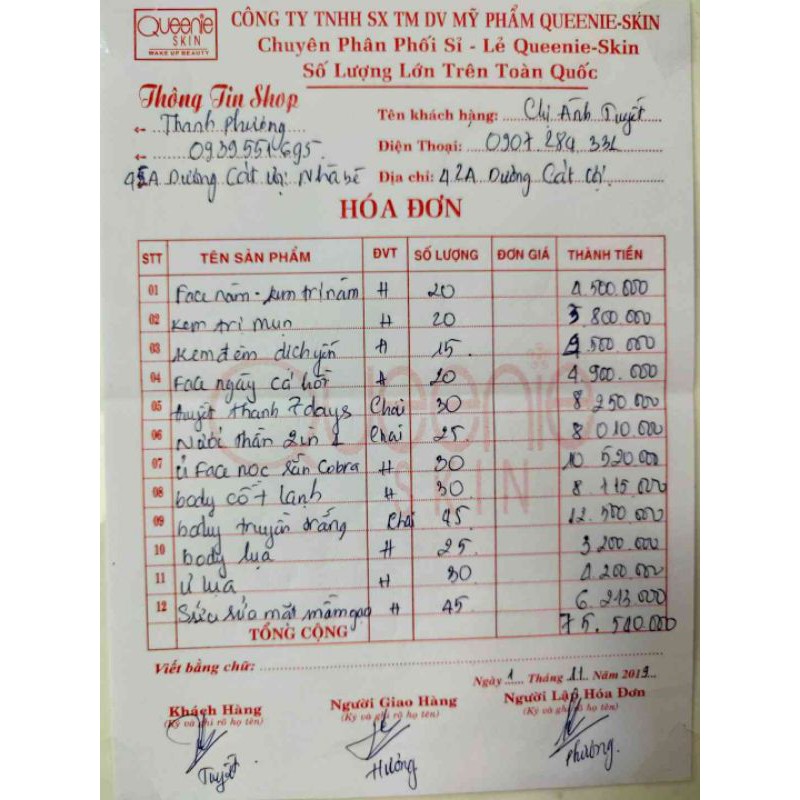 Queenie
SKIN
WAKE UP BEAUTY
CÔNG TY TNHH SX TM DV MỸ PHẨM QUEENIE-SKIN
Chuyên Phân Phối Sỉ - Lẻ Queenie-Skin
Số Lượng Lớn Trên Toàn Quốc
Thông Tin Shop
Thanh Phương
0939551695
Dường Cát Nhà bè
Tên khách hàng: Chị Ánh Tuyết
Điện Thoại: 0907 284 331
Địa chỉ: 42A Dường Cát
HÓA ĐƠN
STT TÊN SẢN PHẨM ĐVT SỐ LƯỢNG ĐƠN GIÁ THÀNH TIỀN
01 Face nám - kem trị nám H 20 500.000
02 Kem trị mụn H 20 3 800 000
03 Kem đêm dịch yến H 15. 500.000
04 Face ngày cá hồi H 20 4.900.000
05 huyết thanh 7 days Chai 30 8 250.000
06 Nước thần 2 in 1 Chai 25. 8 010 000
07 ủ Face nọc rắn Cobra H 30 10 520.000
08 body cốt lạnh H 30 8 115.000
09 body truyền trắng Chai 45 12.500 000
10 body lụa H 25. 3 200 000
11 ủ lụa H 30 200.000
12 Sữa rửa mặt mầm gạo H 45 6.213 000
TỔNG CỘNG 75.510.000
Viết bằng chữ:
Ngày 1 Tháng 11 Năm 2019
Khách Hàng Người Giao Hàng Người Lập Hóa Đơn
(Ký và ghi rõ họ tên) (Ký và ghi rõ họ tên) (Ký và ghi rõ họ tên)
Tuyết Hương Phương.
Queenie
SKIN